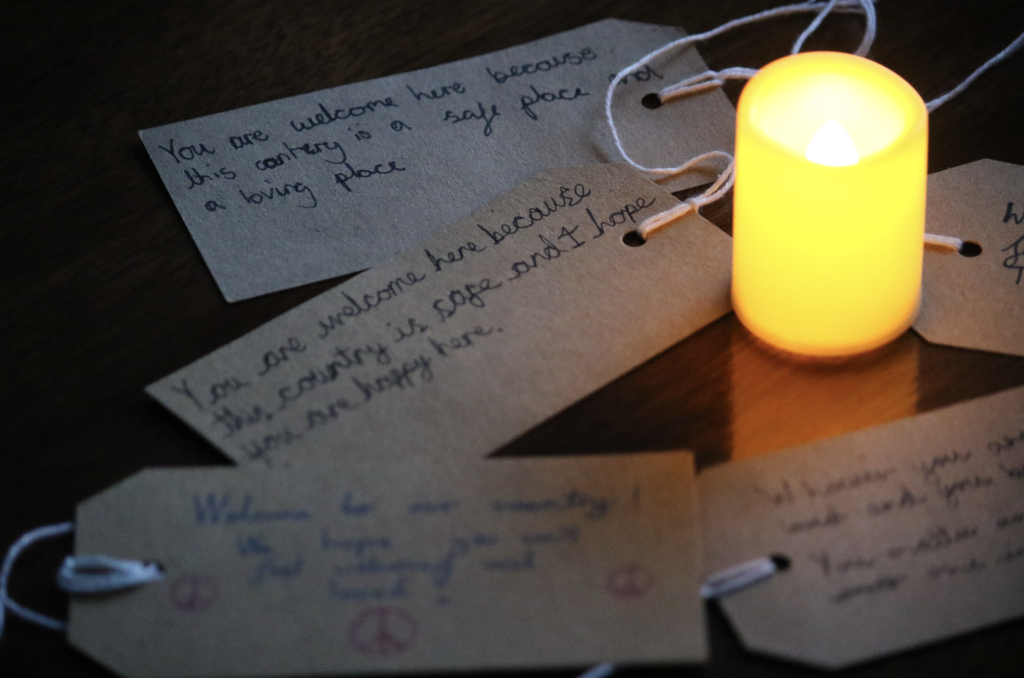 You are welcome here because
this contery is a safe place and
a loving place
You are welcome here because
this country is safe and I hope
you are happy here.
Welcome to our country!
We hope you
feel welcomed and
loved!
Whoever you are
and
You matter